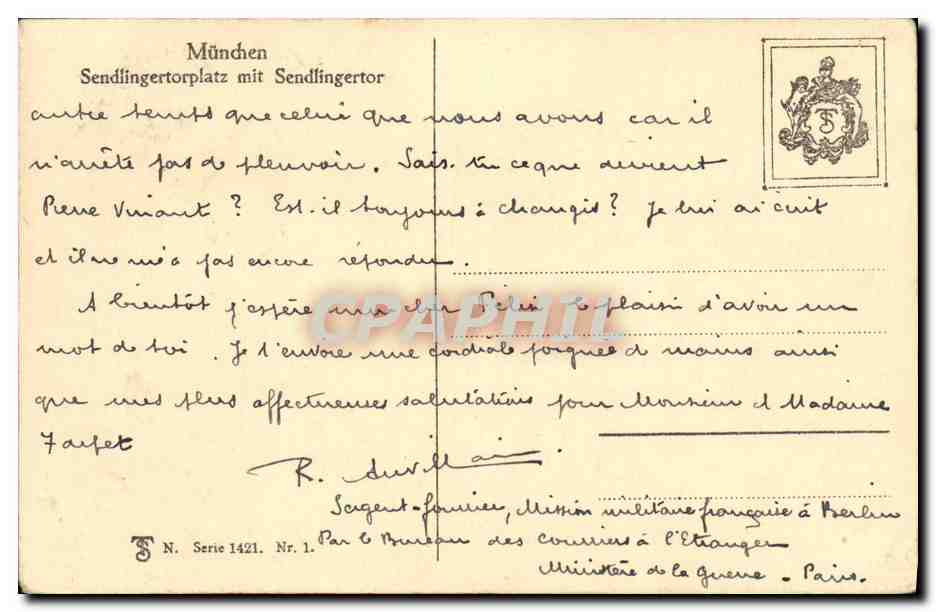 München
Sendlingertorplatz mit Sendlingertor
autre temps que celui que nous avons car il
n'arrête pas de pleuvoir. Sais-tu ce que devient
Pierre ? Est-il toujours à changis? Je lui ai écrit
et il ne m'a pas encore répondu.
A bientôt j'espère mon cher Félix le plaisir d'avoir un
mot de toi. Je t'envoie une cordiale poignée de mains ainsi
que mes plus affectueuses salutations pour Monsieur et Madame
R.
Sergent-fourrier, Mission militaire française à Berlin
Par le Bureau des Courriers à l'Etranger
Ministère de la Guerre - Paris.
TS N. Serie 1421. Nr. 1.
TS
CPAPHIL